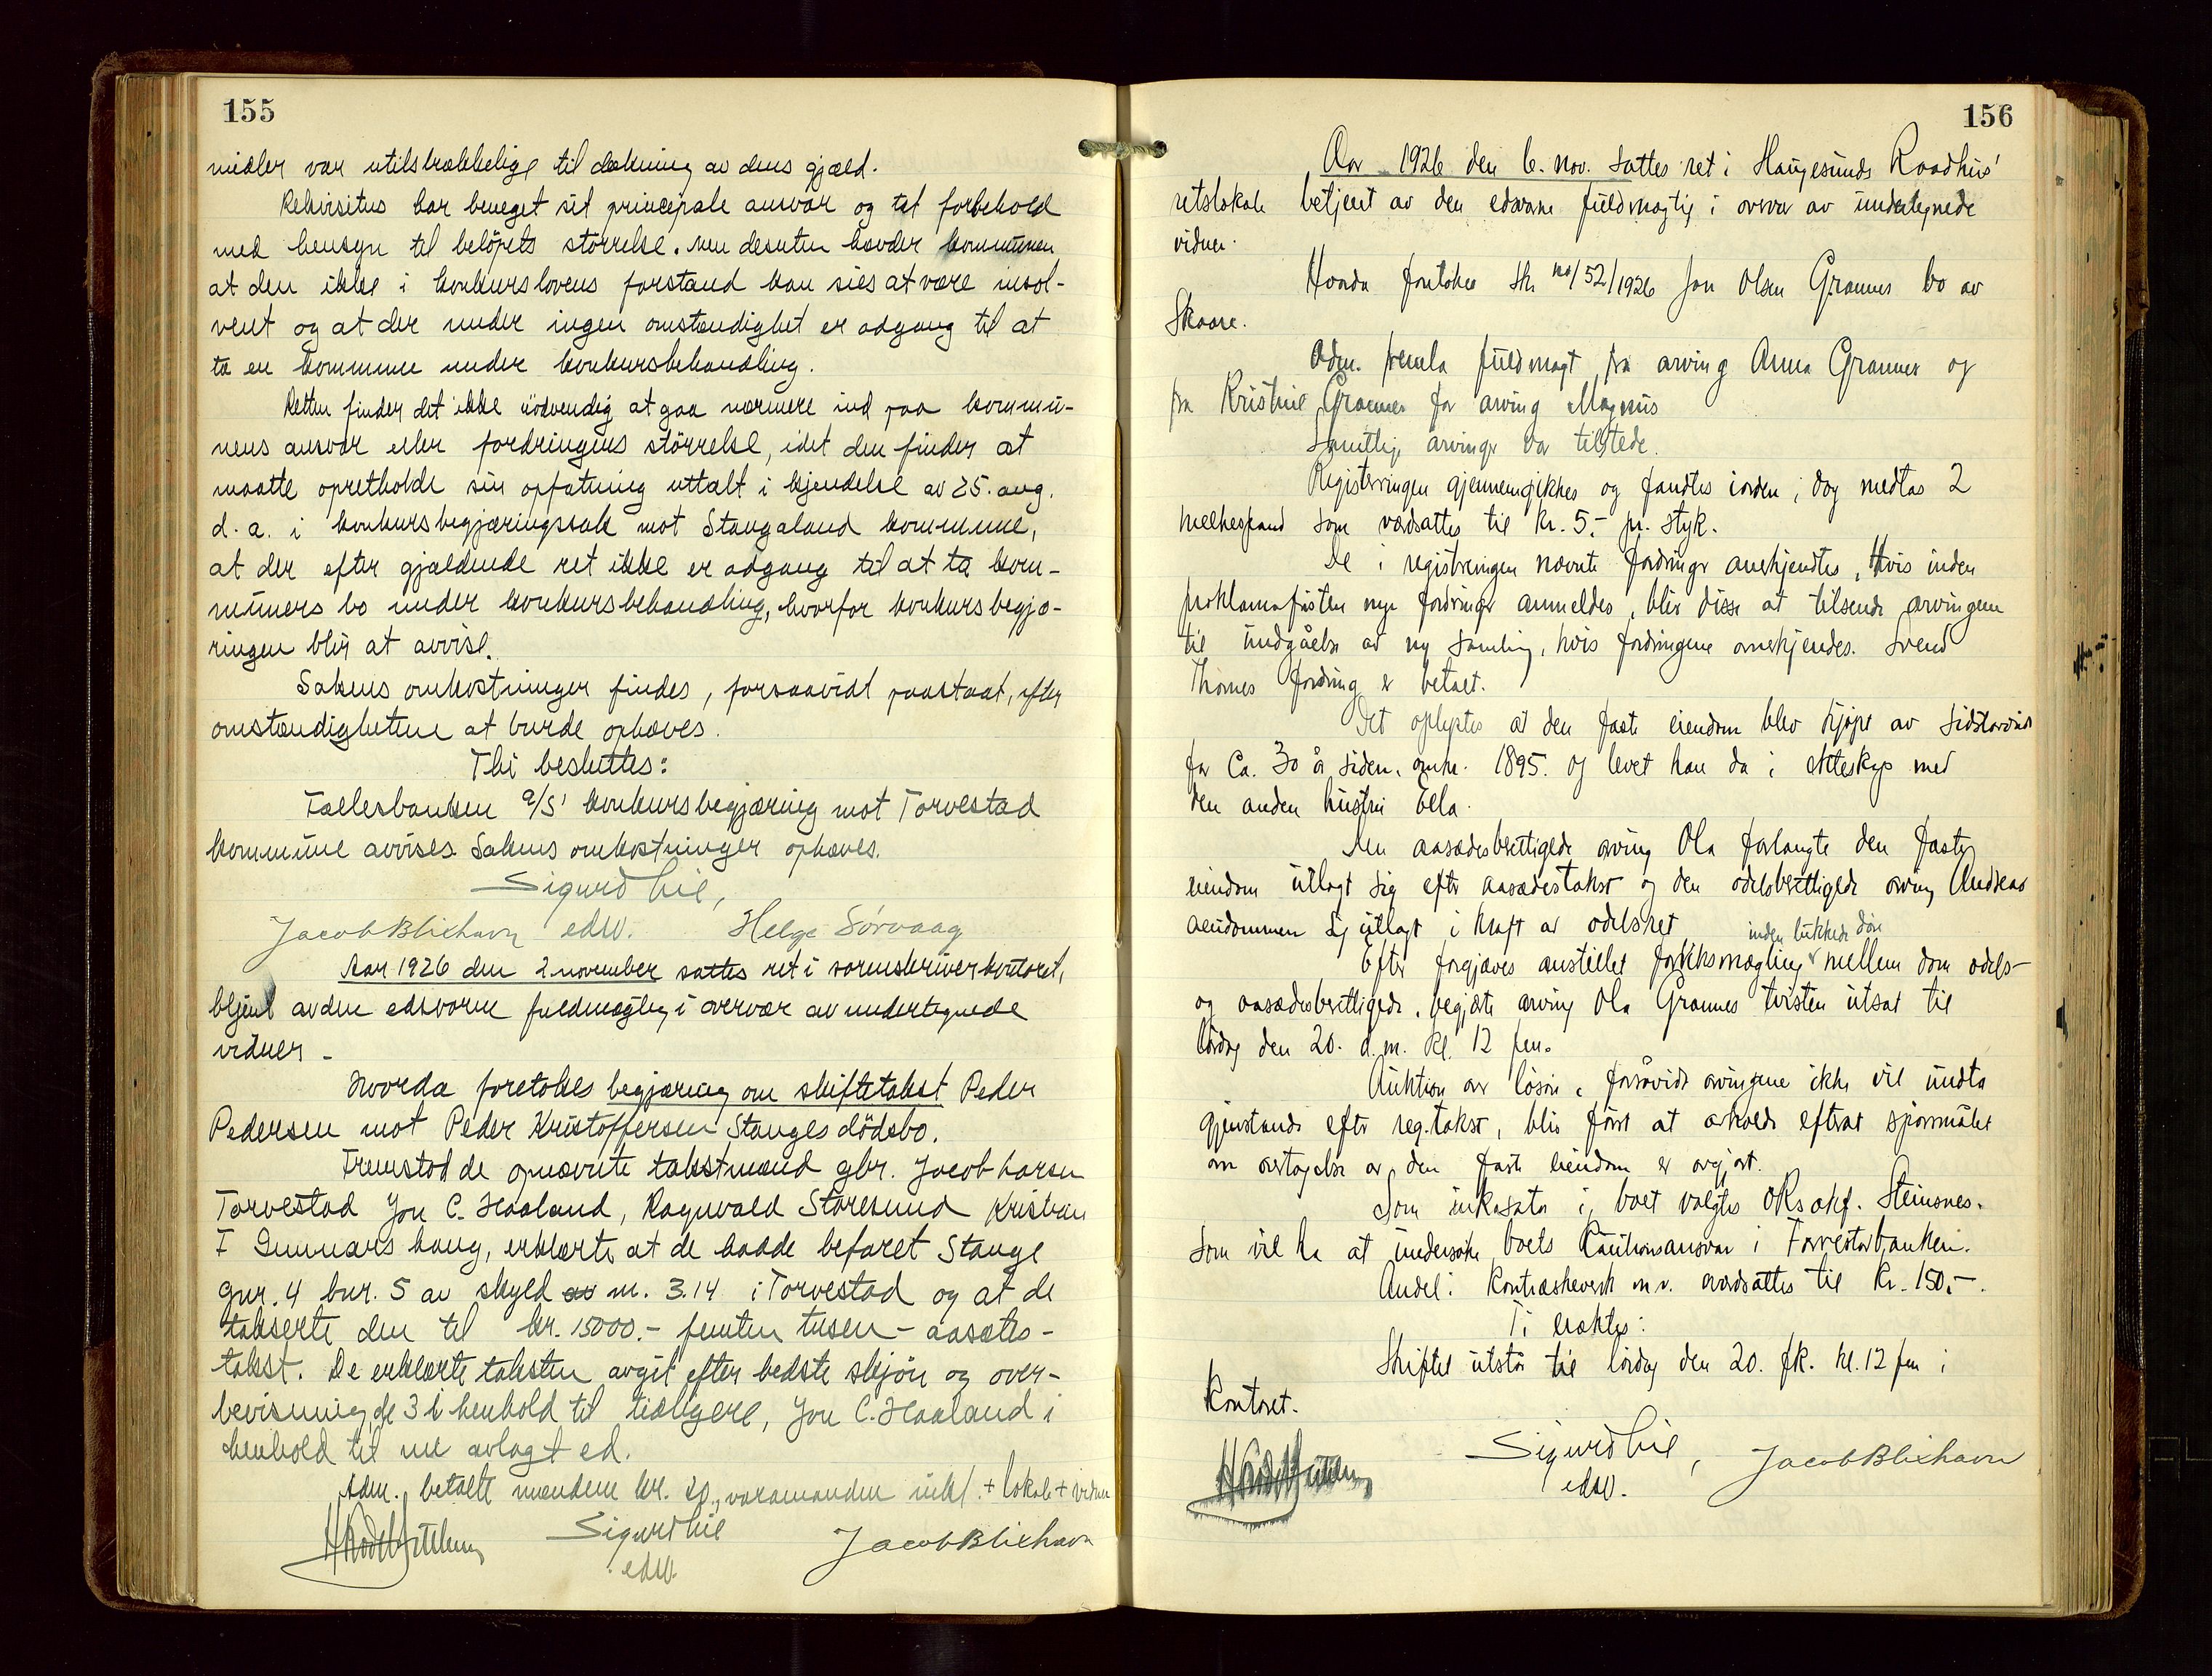 155
midler var utilstrækkelige til dækning av dens gjæld.
Rekvisitus har benegtet sit principale ansvar og tat forbehold
med hensyn til beløpets størrelse. Men desuten hævder kommunen
at den ikke i konkurslovens forstand kan sies at være insol-
vent og at der under ingen omstændighet er adgang til at
ta en kommune under konkursbehandling.
Retten finder det ikke nödvendig at gaa nærmere ind paa kommu-
nens ansvar eller fordringens störrelse, idet den finder at
maatte opretholde sin opfatning uttalt i kjendelse av 25. aug.
d. a. i konkursbegjæringssak mot Stangaland kommune,
at der efter gjældende ret ikke er adgang til at ta kom-
muners bo under konkursbehandling, hvorfor konkursbegjæ-
ringen blir at avvise.
Sakens omkostninger findes, forsaavidt paastaat, efter
omstændigheterne at burde ophæves.
Thi besluttes:
Fællesbanken a/s' konkursbegjæring mot Torvestad
kommune avvises. Sakens omkostninger ophæves.
Sigurd Lie,
Jacob Blixhavn edsv. Helge Sörvaag
Aar 1926 den 2 november sattes ret i sorenskriverkontoret,
betjent av den edsvorne fuldmægtig i overvær av undertegnede
vidner -
Hvorda foretokes begjæring om skiftetakst Peder
Pedersen mot Peder Kristoffersen Stanges dödsbo.
Fremstod de opnævnte takstmænd gbr. Jacob Larsen
Torvestad Jon C. Haaland, Ragnvald Storesund Kristian
F Gunnarshaug, erklærte at de hadde befaret Stange
gnr. 4 bnr. 5 av skyld av m. 3.14 i Torvestad og at de
takserte den til kr. 15000.- femten tusen - aasætes-
takst. De erklærte taksten avgit efter bedste skjön og over-
bevisning, de 3 i henhold til tidligere, Jon C. Haaland i
henhold til nu avlagt ed.
Adm. betalte mændene kr. 20., varamanden inkl. + lokale + vidner
Sigurd Lie Jacob Blixhavn
edsv.
156
Aar 1926 den 6. nov. sattes ret i Haugesunds Raadhus'
retslokale betjent av den edsvorne fuldmægtig i overvær av undertegnede
vidner.
Hvorda foretokes sk no/52/1926 Jon Olsen Grannes bo av
Skaare.
Adm. fremla fuldmagt fra arving Anna Grannes og
fra Kristine Grannes for arving Magnus
Samtlige arvinger var tilstede.
Registreringen gjennemgikkes og fandtes iorden, dog medtas 2
melkespand som værdsattes til kr. 5.- pr. styk.
De i registreringen nævnte fordringer anerkjendtes. Hvis inden
proklamafristen nye fordringer anmeldes, blir disse at tilsende arvingene
til undgåelse av ny samling, hvis fordringene anerkjendes. Svend
Thomes fordring er betalt.
Det oplystes at den faste eiendom blev kjöpt av sidstavdöde
for ca. 30 år siden, omkr. 1895. og levet han da i ekteskap med
den anden hustru Ella.
Den aasædesberettigede arving Ola forlangte den faste
eiendom utlagt sig efter aasædestakst og den odelsberettigede arving Andreas
aeiendommen sig utlagt i kraft av odelsret
inden lukkede döre
Efter forgjæves anstillet forliksmægling mellem dem odels-
og aasædesberettigede, begjærte arving Ola Grannes tvisten utsat til
lördag den 20. d.m. kl. 12 fm.
Auktion over lösöre, forsåvidt arvingene ikke vil undta
gjenstande efter reg.takst, blir först at avholde efterat spörsmålet
om overtagelse av den faste eiendom er avgjort.
Som inkasator i boet valgtes o.r.sakf. Steinsnes.
som vil ha at undersöke boets kautionsansvar i Torvestadbanken.
Andel i kontraskeverk m.v. værdsattes til kr. 150.-.
Ti vedtokes:
Skiftet utstår til lördag den 20. fk. kl. 12 fm i
kontoret.
Sigurd Lie, Jacob Blixhavn
edsv.